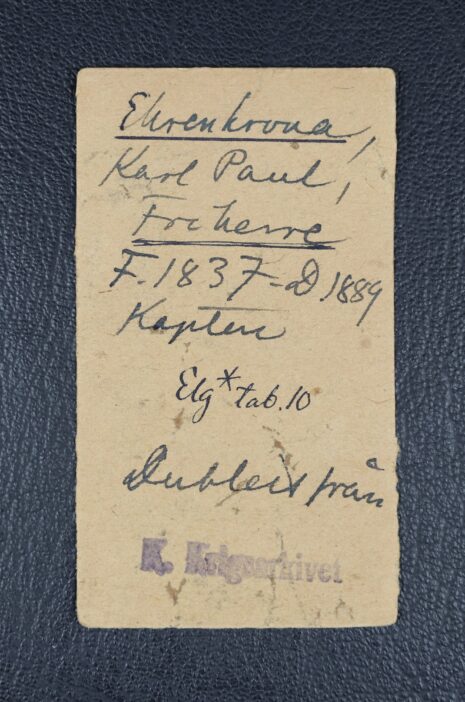 Ehrenkrona,
Karl Paul,
Friherre
F. 1837 - D 1889
Kapten
Elg * tab. 10
Dublett från
K. Krigsarkivet